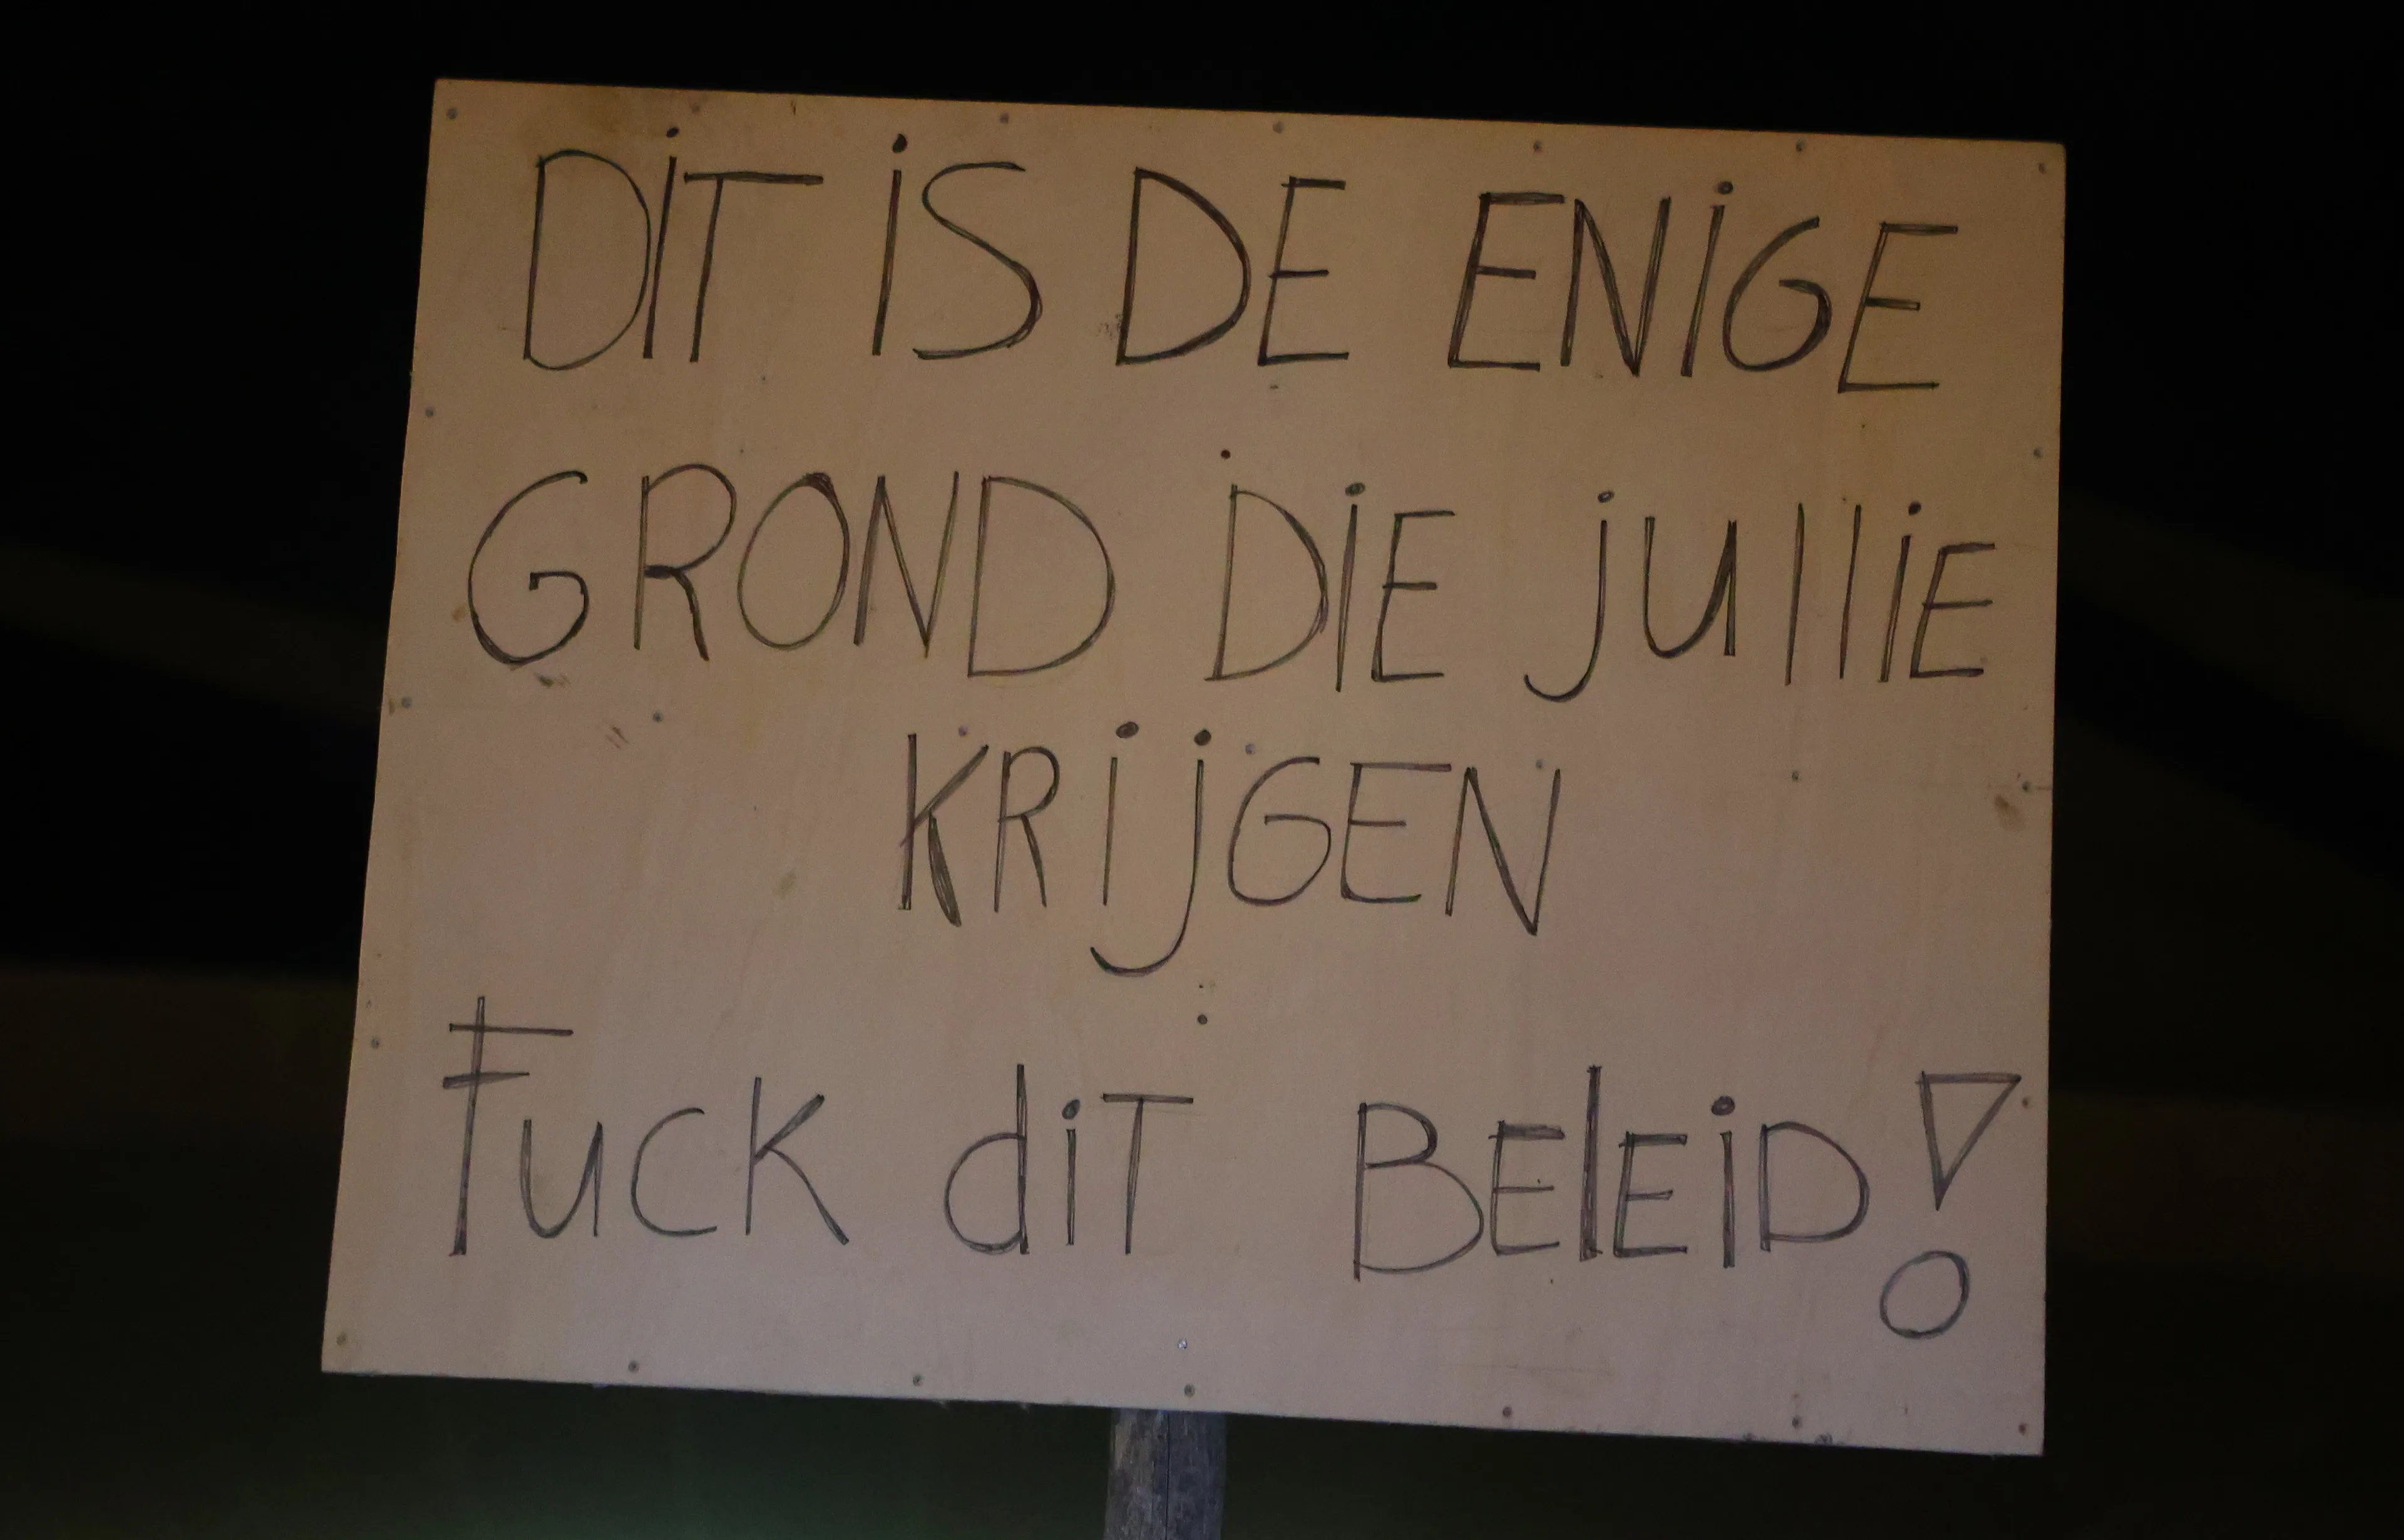 DiT iS DE ENiGE
GROND DiE julliE
KRijGEN
Fuck diT BElEiD!